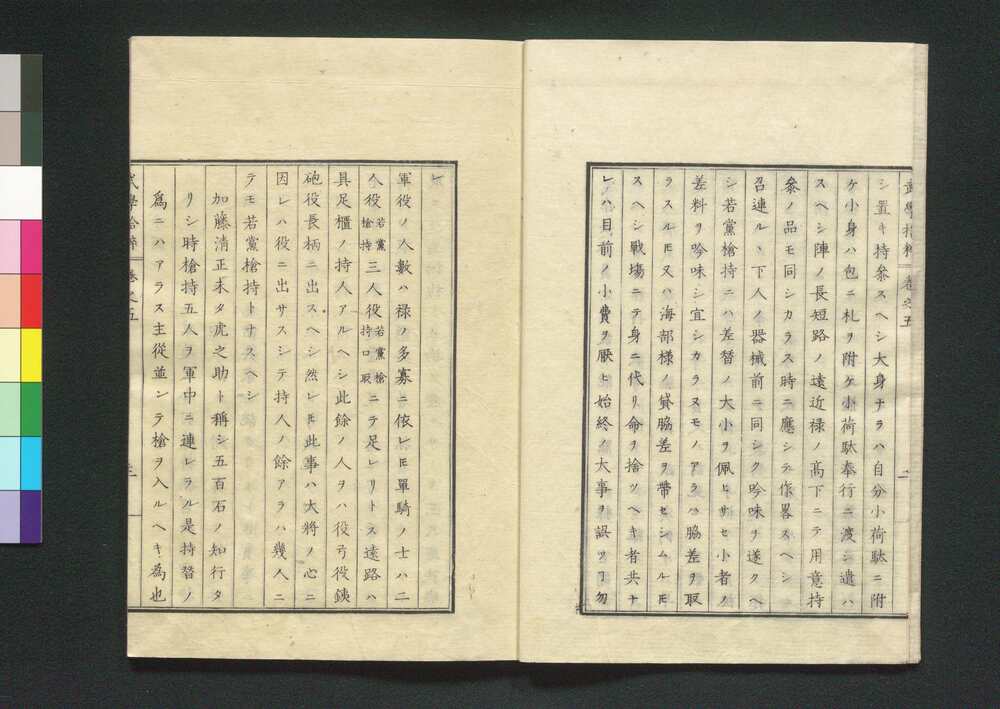 武學拾粹 卷之五
シ置キ持參スヘシ大身ナラハ自分小荷駄ニ附
ケ小身ハ包ニ札ヲ附ケ小荷駄奉行ニ渡シ遣ハ
スヘシ陣ノ長短路ノ遠近禄ノ髙下ニテ用意持
參ノ品モ同シカラス時ニ應シテ作畧スヘシ
召連ルヽ下人ノ器械前ニ同シク吟味ヲ遂クヘ
シ若黨槍持ニハ差替ノ大小ヲ佩ヒサセ小者ノ
差料ヲ吟味シ宜シカラヌモノアラハ脇差ヲ取
ラスルヿ又ハ海部様ノ貸脇差ヲ帶セシムルヿ
スヘシ戰塲ニテ身ニ代リ命ヲ捨ツヘキ者共ナ
レハ目前ノ小費ヲ厭ヒ始終ノ大事ヲ誤ツヿ勿
レ
軍役ノ人數ハ禄ノ多寡ニ依レ𪜈單騎ノ士ハ二
人役若黨槍持三人役若黨槍持口取ニテ足レリトス遠路ハ
具足櫃ノ持人アルヘシ此餘ノ人ヲハ役弓役銕
砲役長柄ニ出スヘシ然レ𪜈此事ハ大將ノ心ニ
因レハ役ニ出サスシテ持人ノ餘アラハ幾人ニ
テモ若黨槍持トナスヘシ
加藤清正未タ虎之助ト稱シ五百石ノ知行タ
リシ時槍持五人ヲ軍中ニ連レラル是持替ノ
爲ニハアラス主從並ンテ槍ヲ入ルヘキ為也
武學拾粹 卷之五